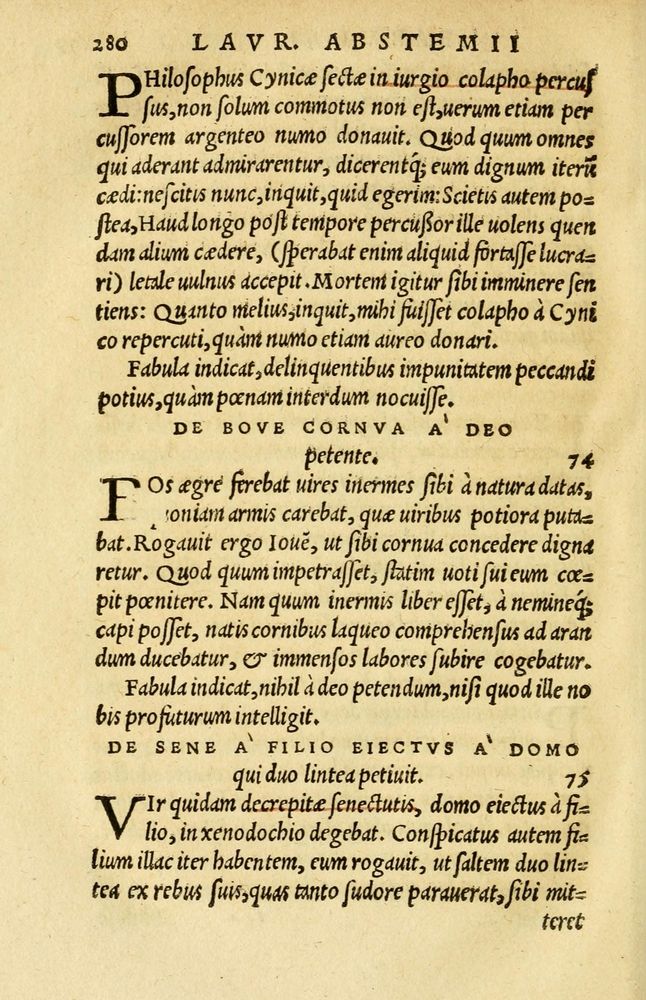 280 LAVR. ABSTEMII
PHilosophus Cynicæ sectæ in iurgio colapho percus
sus, non solum commotus non est, uerum etiam per
cussorem argenteo numo donauit. Quod quum omnes
qui aderant admirarentur, dicerentq́; eum dignum iterū
cædi: nescitis nunc, inquit, quid egerim: Scietis autem po=
stea, Haud longo post tempore percußor ille uolens quen
dam alium cædere, (sperabat enim aliquid fortasse lucra=
ri) letale uulnus accepit. Mortem igitur sibi imminere sen
tiens: Quanto melius, inquit, mihi fuisset colapho à Cyni
co repercuti, quàm numo etiam aureo donari.
Fabula indicat, delinquentibus impunitatem peccandi
potius, quàm pœnam interdum nocuisse.
DE BOVE CORNVA A` DEO
petente. 74
Os ægre ferebat uires inermes sibi à natura datas,
oniam armis carebat, quæ uiribus potiora puta=
bat. Rogauit ergo Iouē, ut sibi cornua concedere digna
retur. Quod quum impetrasset, statim uoti sui eum cœ=
pit pœnitere. Nam quum inermis liber esset, à nemineq́;
capi posset, natis cornibus laqueo comprehensus ad aran
dum ducebatur, & immensos labores subire cogebatur.
Fabula indicat, nihil à deo petendum, nisi quod ille no
bis profuturum intelligit.
DE SENE A` FILIO EIECTVS A` DOMO
qui duo lintea petiuit. 75
VIr quidam decrepitæ senectutis, domo eiectus à fi=
lio, in xenodochio degebat. Conspicatus autem fi=
lium illac iter habentem, eum rogauit, ut saltem duo lin=
tea ex rebus suis, quas tanto sudore parauerat, sibi mit=
teret